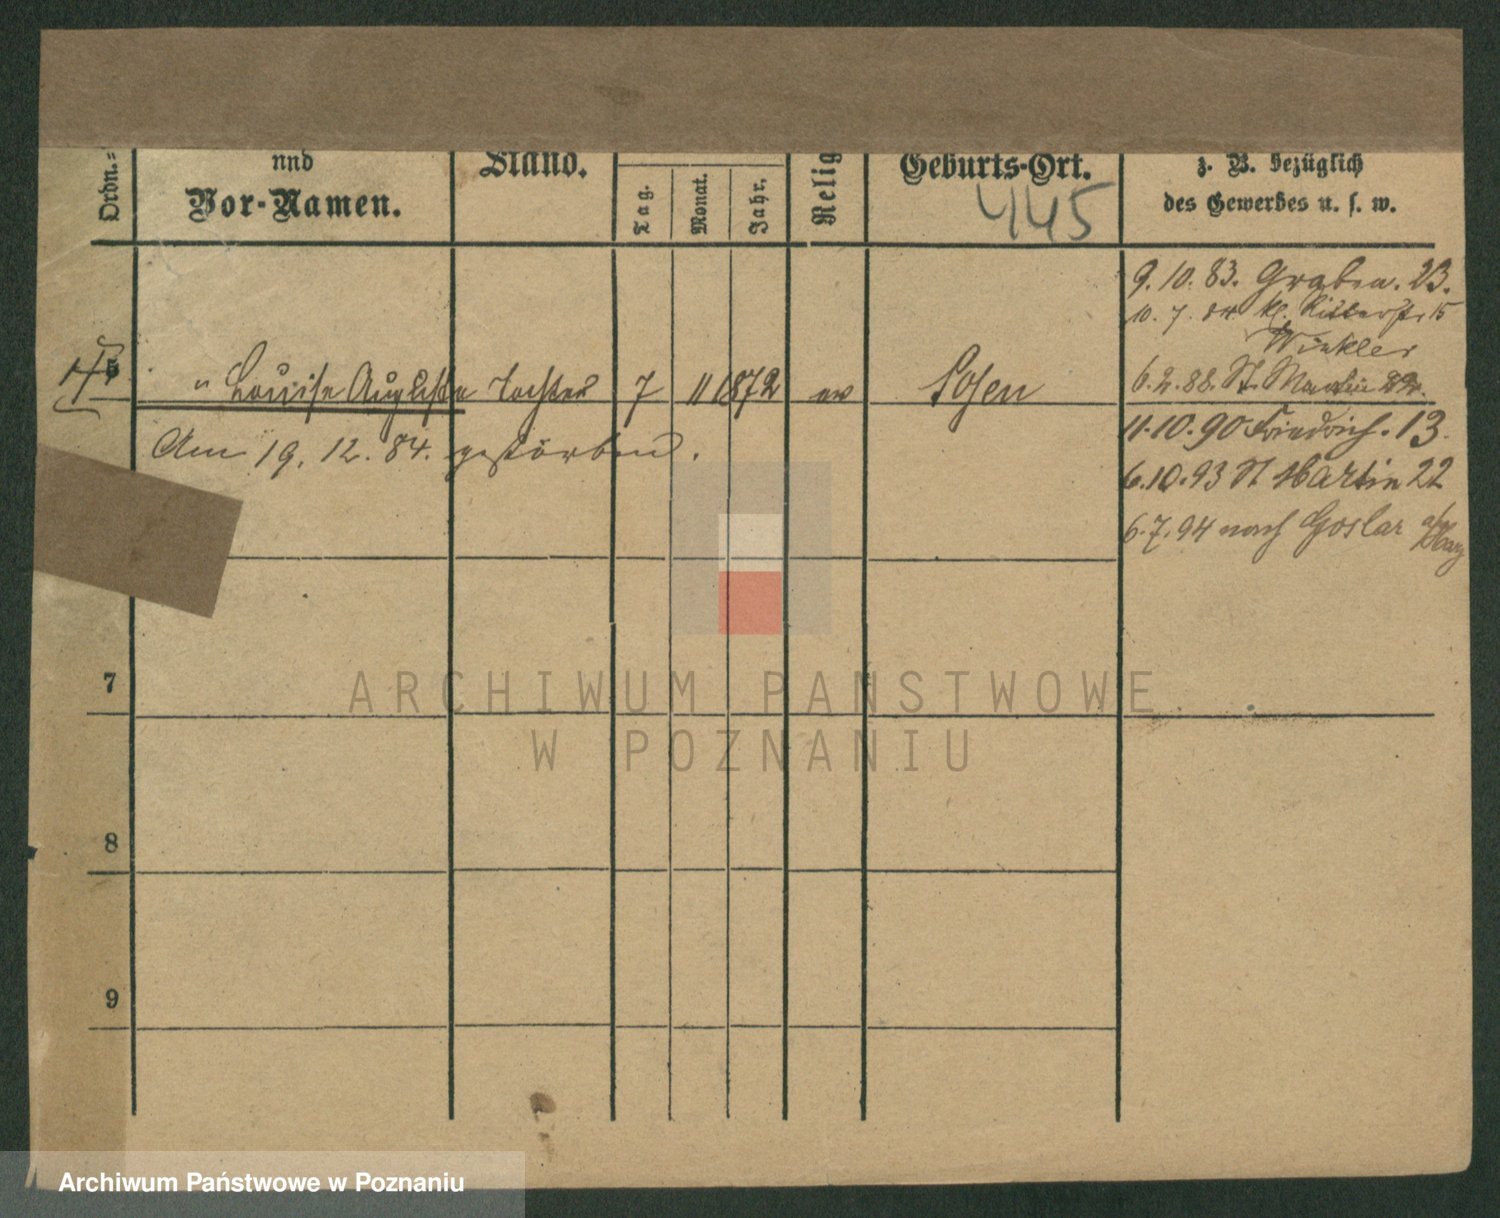 Ordn.=
und
Vor-Namen.
Stand.
Tag.
Monat.
Jahr.
Relig
Geburts-Ort.
445
z. B. bezüglich
des Gewerbes u. s. w.
5
" Louise Auguste Tochter 7 11 1872 ev Posen
Am 19. 12. 84. gestorben.
9. 10. 83. Graben. 23.
10. 7. 84 kl. Ritterstr 15
Winkler
6. 2. 88. St. Martin 22.
11.10.90 Friedrich. 13.
6.10.93 St Martin 22
6.7.94 nach Goslar a/m Harz
7
8
9
ARCHIWUM PAŃSTWOWE
W POZNANIU
Archiwum Państwowe w Poznaniu